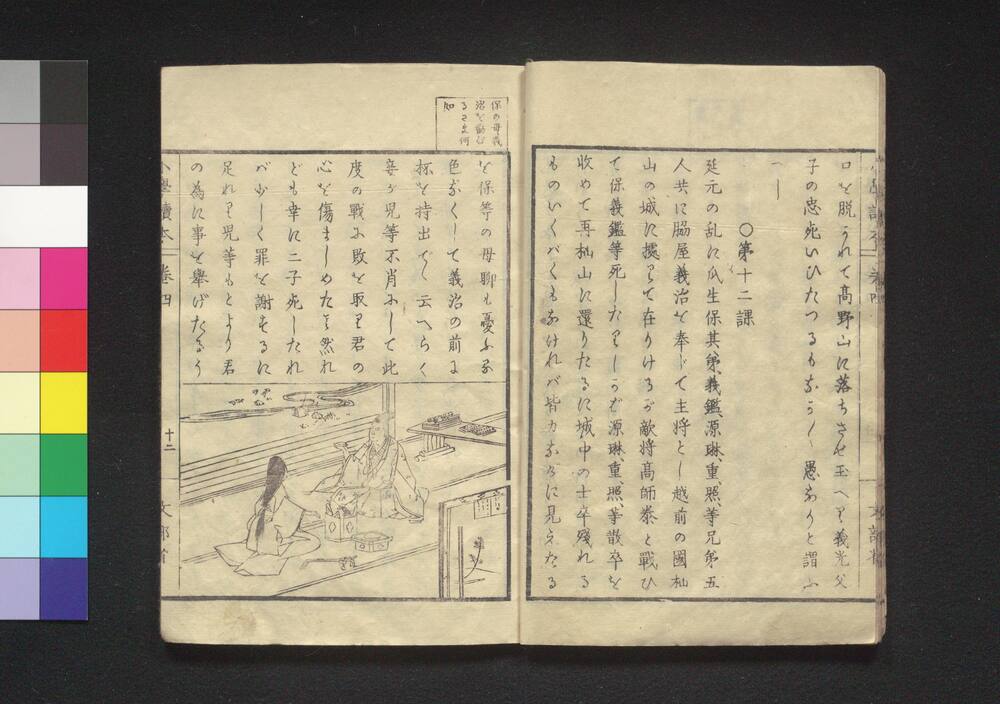 口を脱うれて高野山に落ちさせ玉へり義光父
子の忠死いひたつるもおろかなり愚ありと謂ふ
べし
〇第十二課
延元の乱に瓜生保其弟、義鑑、源琳、重、照、等兄弟五
人共に脇屋義治を奉じて主将とし越前の國杣
山の城に據りて在りけるが敵将高師泰と戰ひ
て保義鑑等死したりしかば源琳、重、照、等散卒を
收めて再杣山に還りたるに城中の士卒殘れる
ものいくばくもなければ皆力なげに見えたる
保の母義
治を勸む
るさま何
如
を保等の母聊も憂ふる
色なくして義治の前に
杯を持出でゝ云へらく
妾が児等不肖にして此
度の戰に敗を取り君の
心を傷ましめたり然れ
ども幸に二子死したれ
バ少しく罪を謝するに
足れり児等もとより君
の為に事を擧げたるう
小學讀本
巻四
十二
文部省